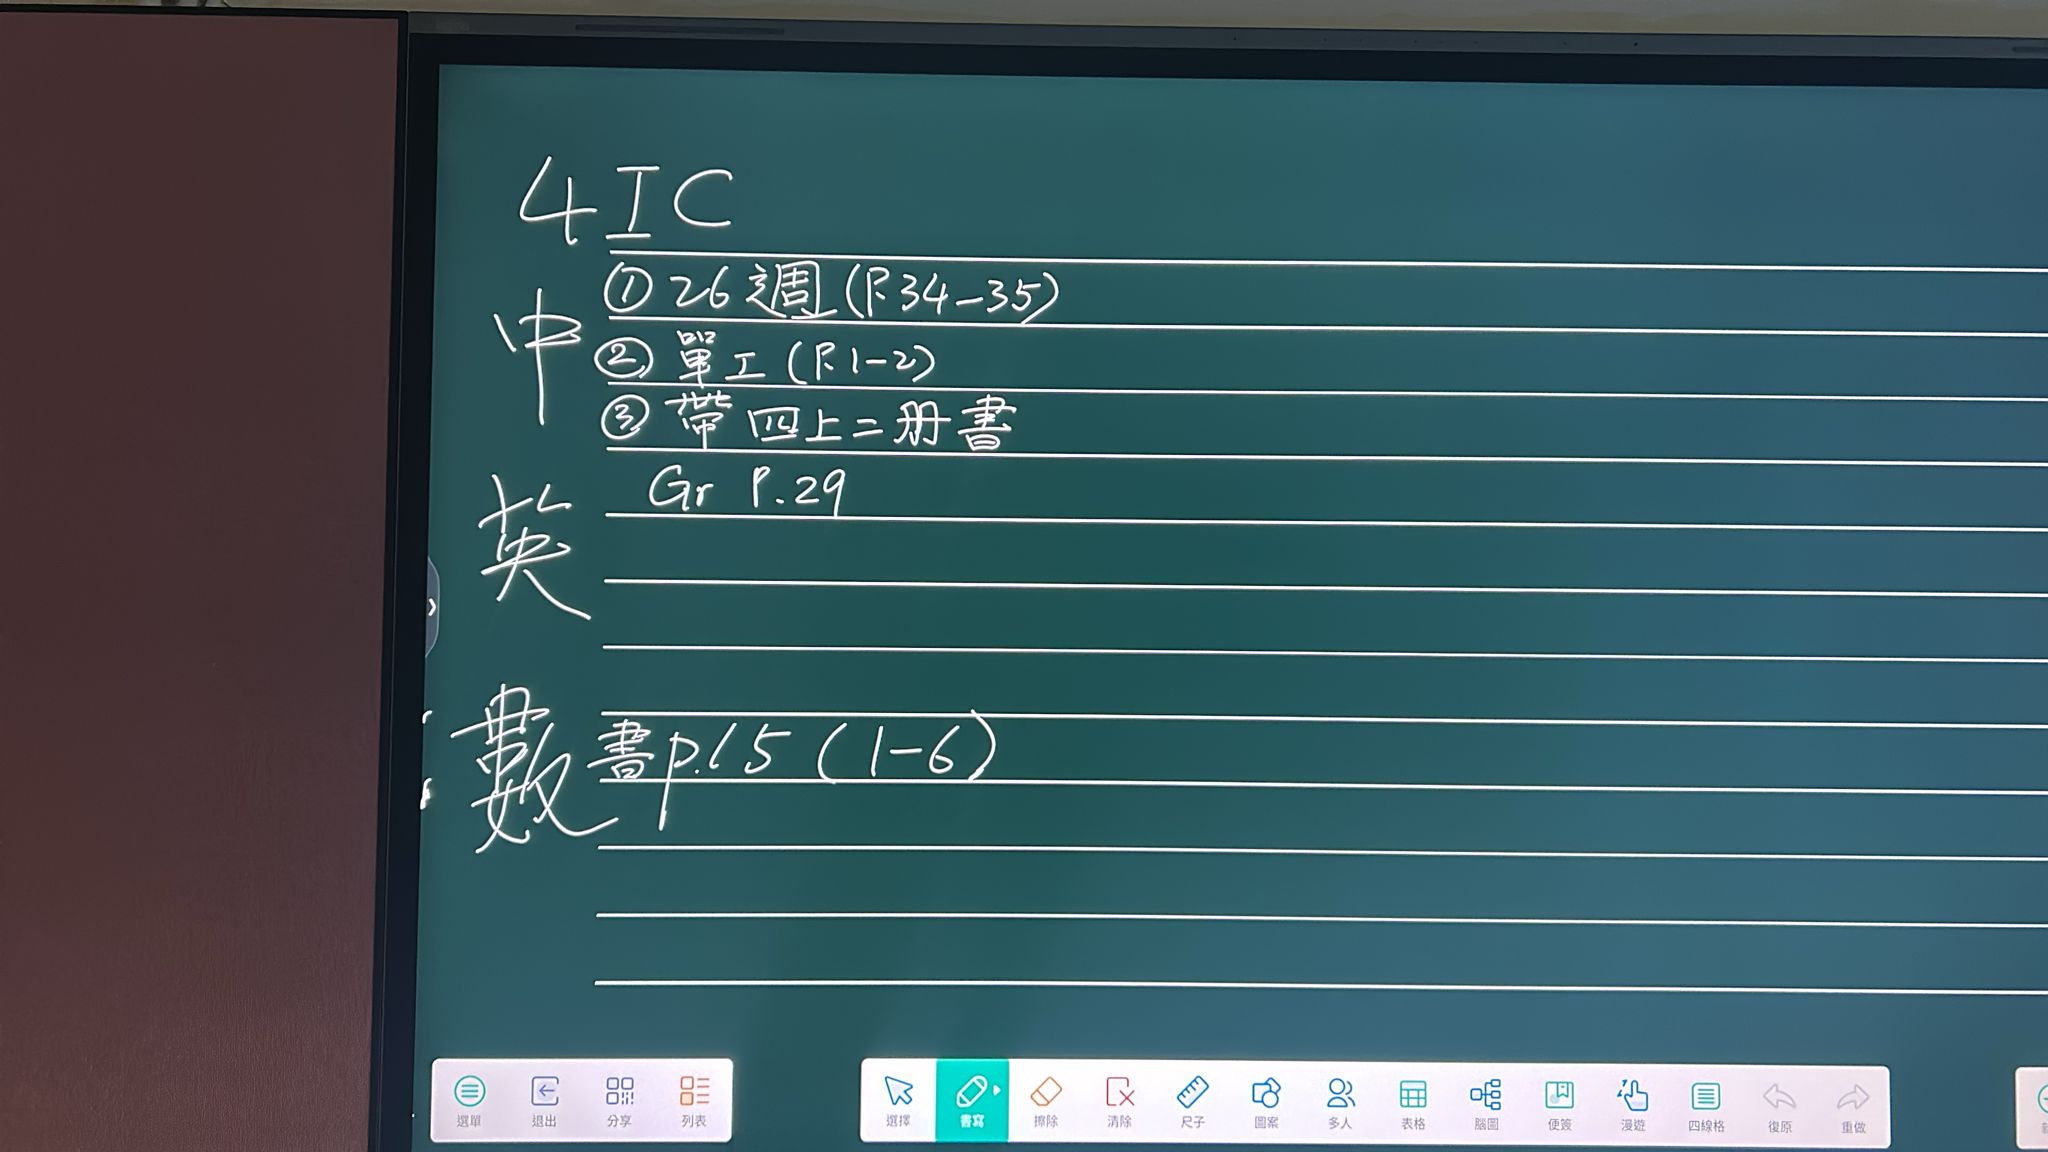 4IC
中
①26週(P.34-35)
②單工(P.1-2)
③帶四上二册書
英
Gr P.29
數
書p.15(1-6)
選單 退出 分享 列表
選擇 書寫 擦除 清除 尺子 圖案 多人 表格 腦圖 便簽 漫遊 四線格 復原 重做